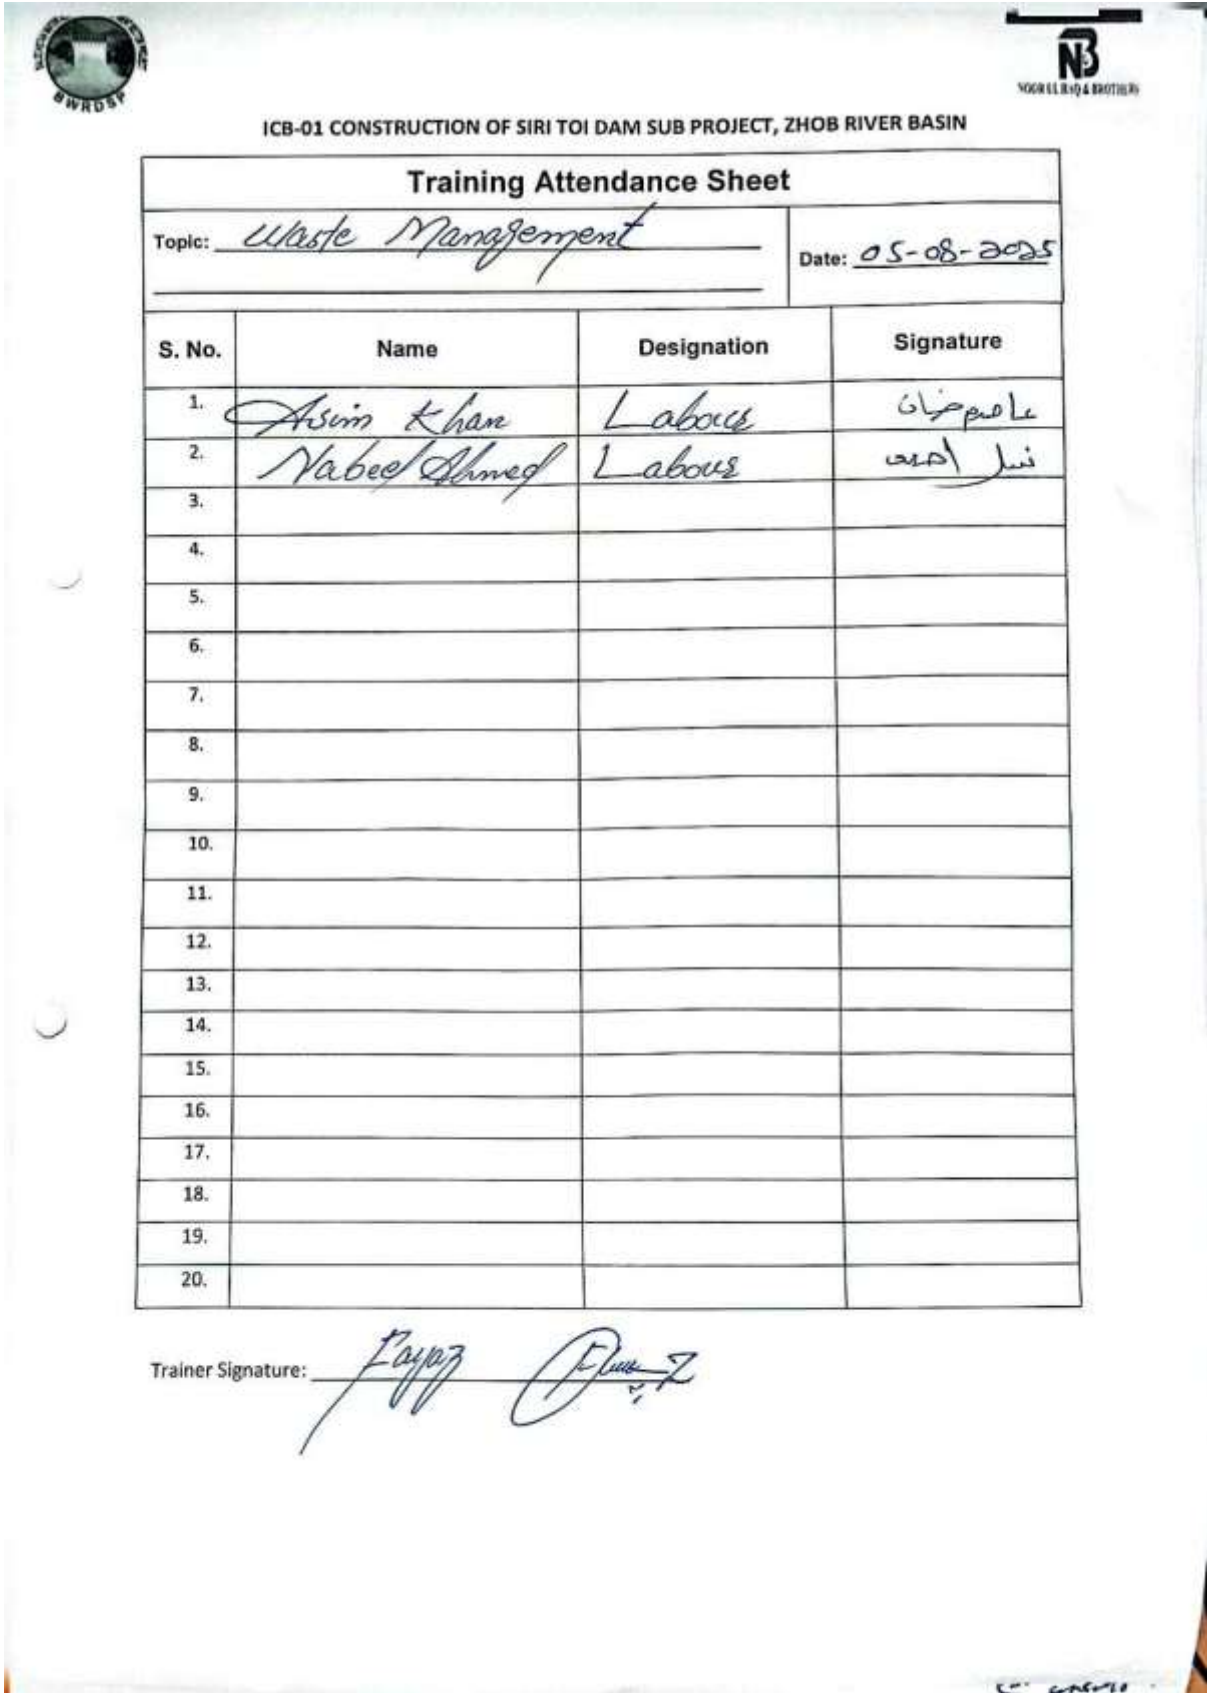 BWRDSP
NB
NOOR UL HAQ & BROTHERS
ICB-01 CONSTRUCTION OF SIRI TOI DAM SUB PROJECT, ZHOB RIVER BASIN
Training Attendance Sheet
Topic: Waste Management
Date: 05-08-2025
S. No. Name Designation Signature
1. Asim Khan Labour عاصم خان
2. Nabeel Ahmed Labour نبیل احمد
3.
4.
5.
6.
7.
8.
9.
10.
11.
12.
13.
14.
15.
16.
17.
18.
19.
20.
Trainer Signature: Fayaz